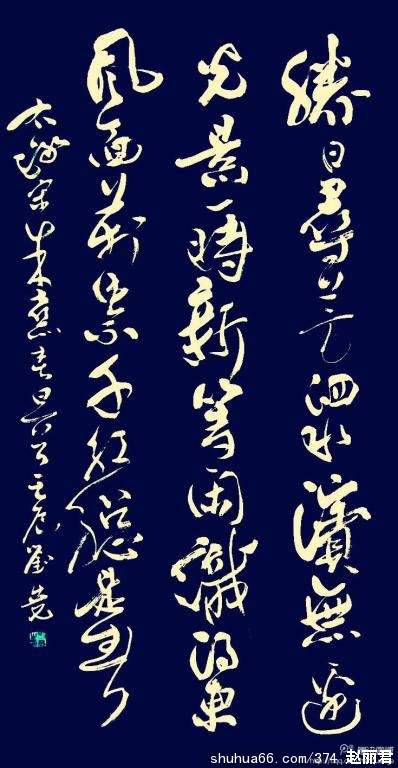 勝日尋芳泗水濱無邊
光景一時新等閑識得東
風面萬紫千紅總是春
右錄宋朱熹春日
shuhua66.com/374 赵丽君